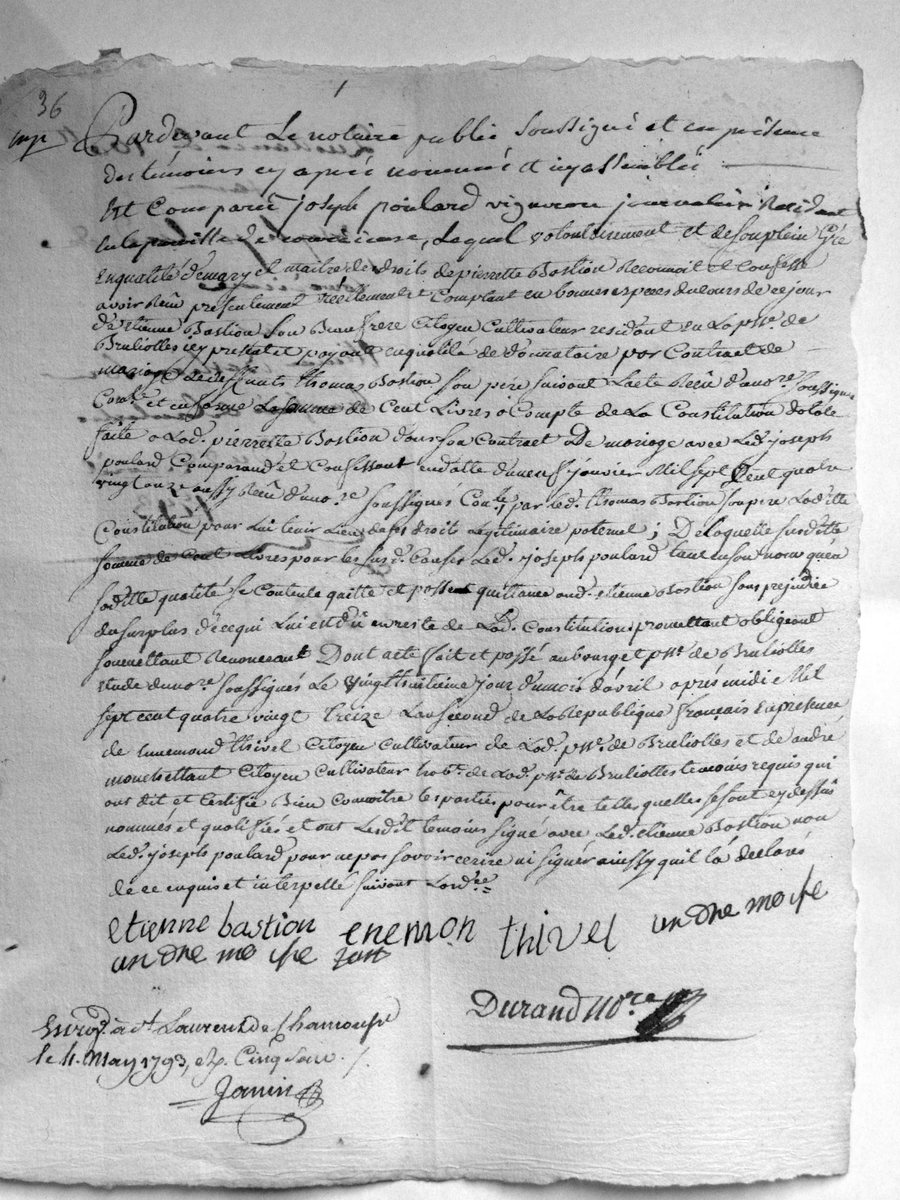 36
Pardevant Le notaire public Soussigné et en présence
des témoins cy après nommés et icy assemblés
Est Comparu joseph poulard vigneron journalier Résidant
en la paroisse de Lequel volontairement et de son plein Gré
En qualité de mary et maitre des droits de pierrette Bastion Reconnait et Confesse
avoir Reçû présentement Réellement et Comptant en bonnes espèces du cours de ce jour
d'Etienne Bastion Son Beau frère Citoyen Cultivateur résidant en La psse. de
Brulliolles icy présent et payant en qualité de donnataire par Contract de
mariage de deffunt Thomas Bastion Son père Suivant L'acte Reçû du nore. Soussigné
Conlé. et en forme La Somme de Cent Livres à Compte de La Constitution dotale
faite à Lad. pierrette Bastion dans Son Contract De mariage avec Led. joseph
poulard Comparand et Confessant en datte du neuf janvier Mil Sept Cent quatre
vingt onze aussy Reçû du nore. Soussigné Conlé, par Led. Thomas Bastion Son père Laditte
Constitution pour Lui tenir Lieu de ses droits Légitimaire paternel; De Laquelle Susditte
Somme de Cent Livres pour les Susd. Causes Led. joseph poulard tant en son nom qu'en
Saditte qualité Se Contente quitte et passent quittance aud. etienne Bastion Sans préjudice
du Surplus de ce qui Lui est dû en reste de Lad. Constitution, promettant obligeant
Soumettant Renonceant Dont acte fait et passé au bourg et psse. de Brulliolles
étude du nore. Soussigné Le vingt huitième jour du mois d'avril après midi Mil
Sept cent quatre vingt treize L'an Second de La République français En présence
de Ennemond Thivel Citoyen Cultivateur de Lad. psse. de Brulliolles et de andré
Citoyen Cultivateur de Lad. psse. de Brulliolles témoins requis qui
ont dit et Certifié Bien Connoître les parties pour être telles quelles Se Sont cy dessus
nommés et qualifiés et ont Lesdit témoins Signé avec Led. etienne Bastion non
Led. joseph poulard pour ne pas Savoir écrire ni Signer ainssy qu'il l'a déclaré
de ce enquis et interpellé Suivant L'ordce.
etienne bastion enemon thivel an dre mo che
an dre mo che
Durand nore
Enrgé à St. Laurent de Chamousse
le 4. May 1793, Cinq Sous.
Janin